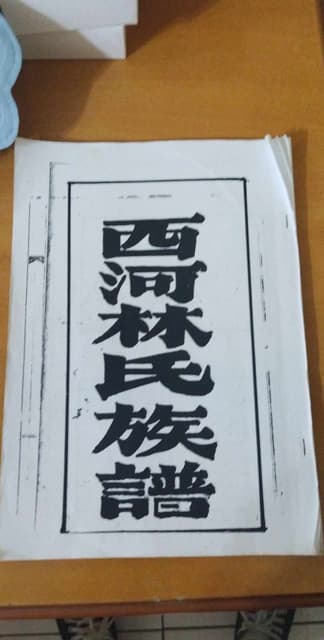 西河林氏族譜